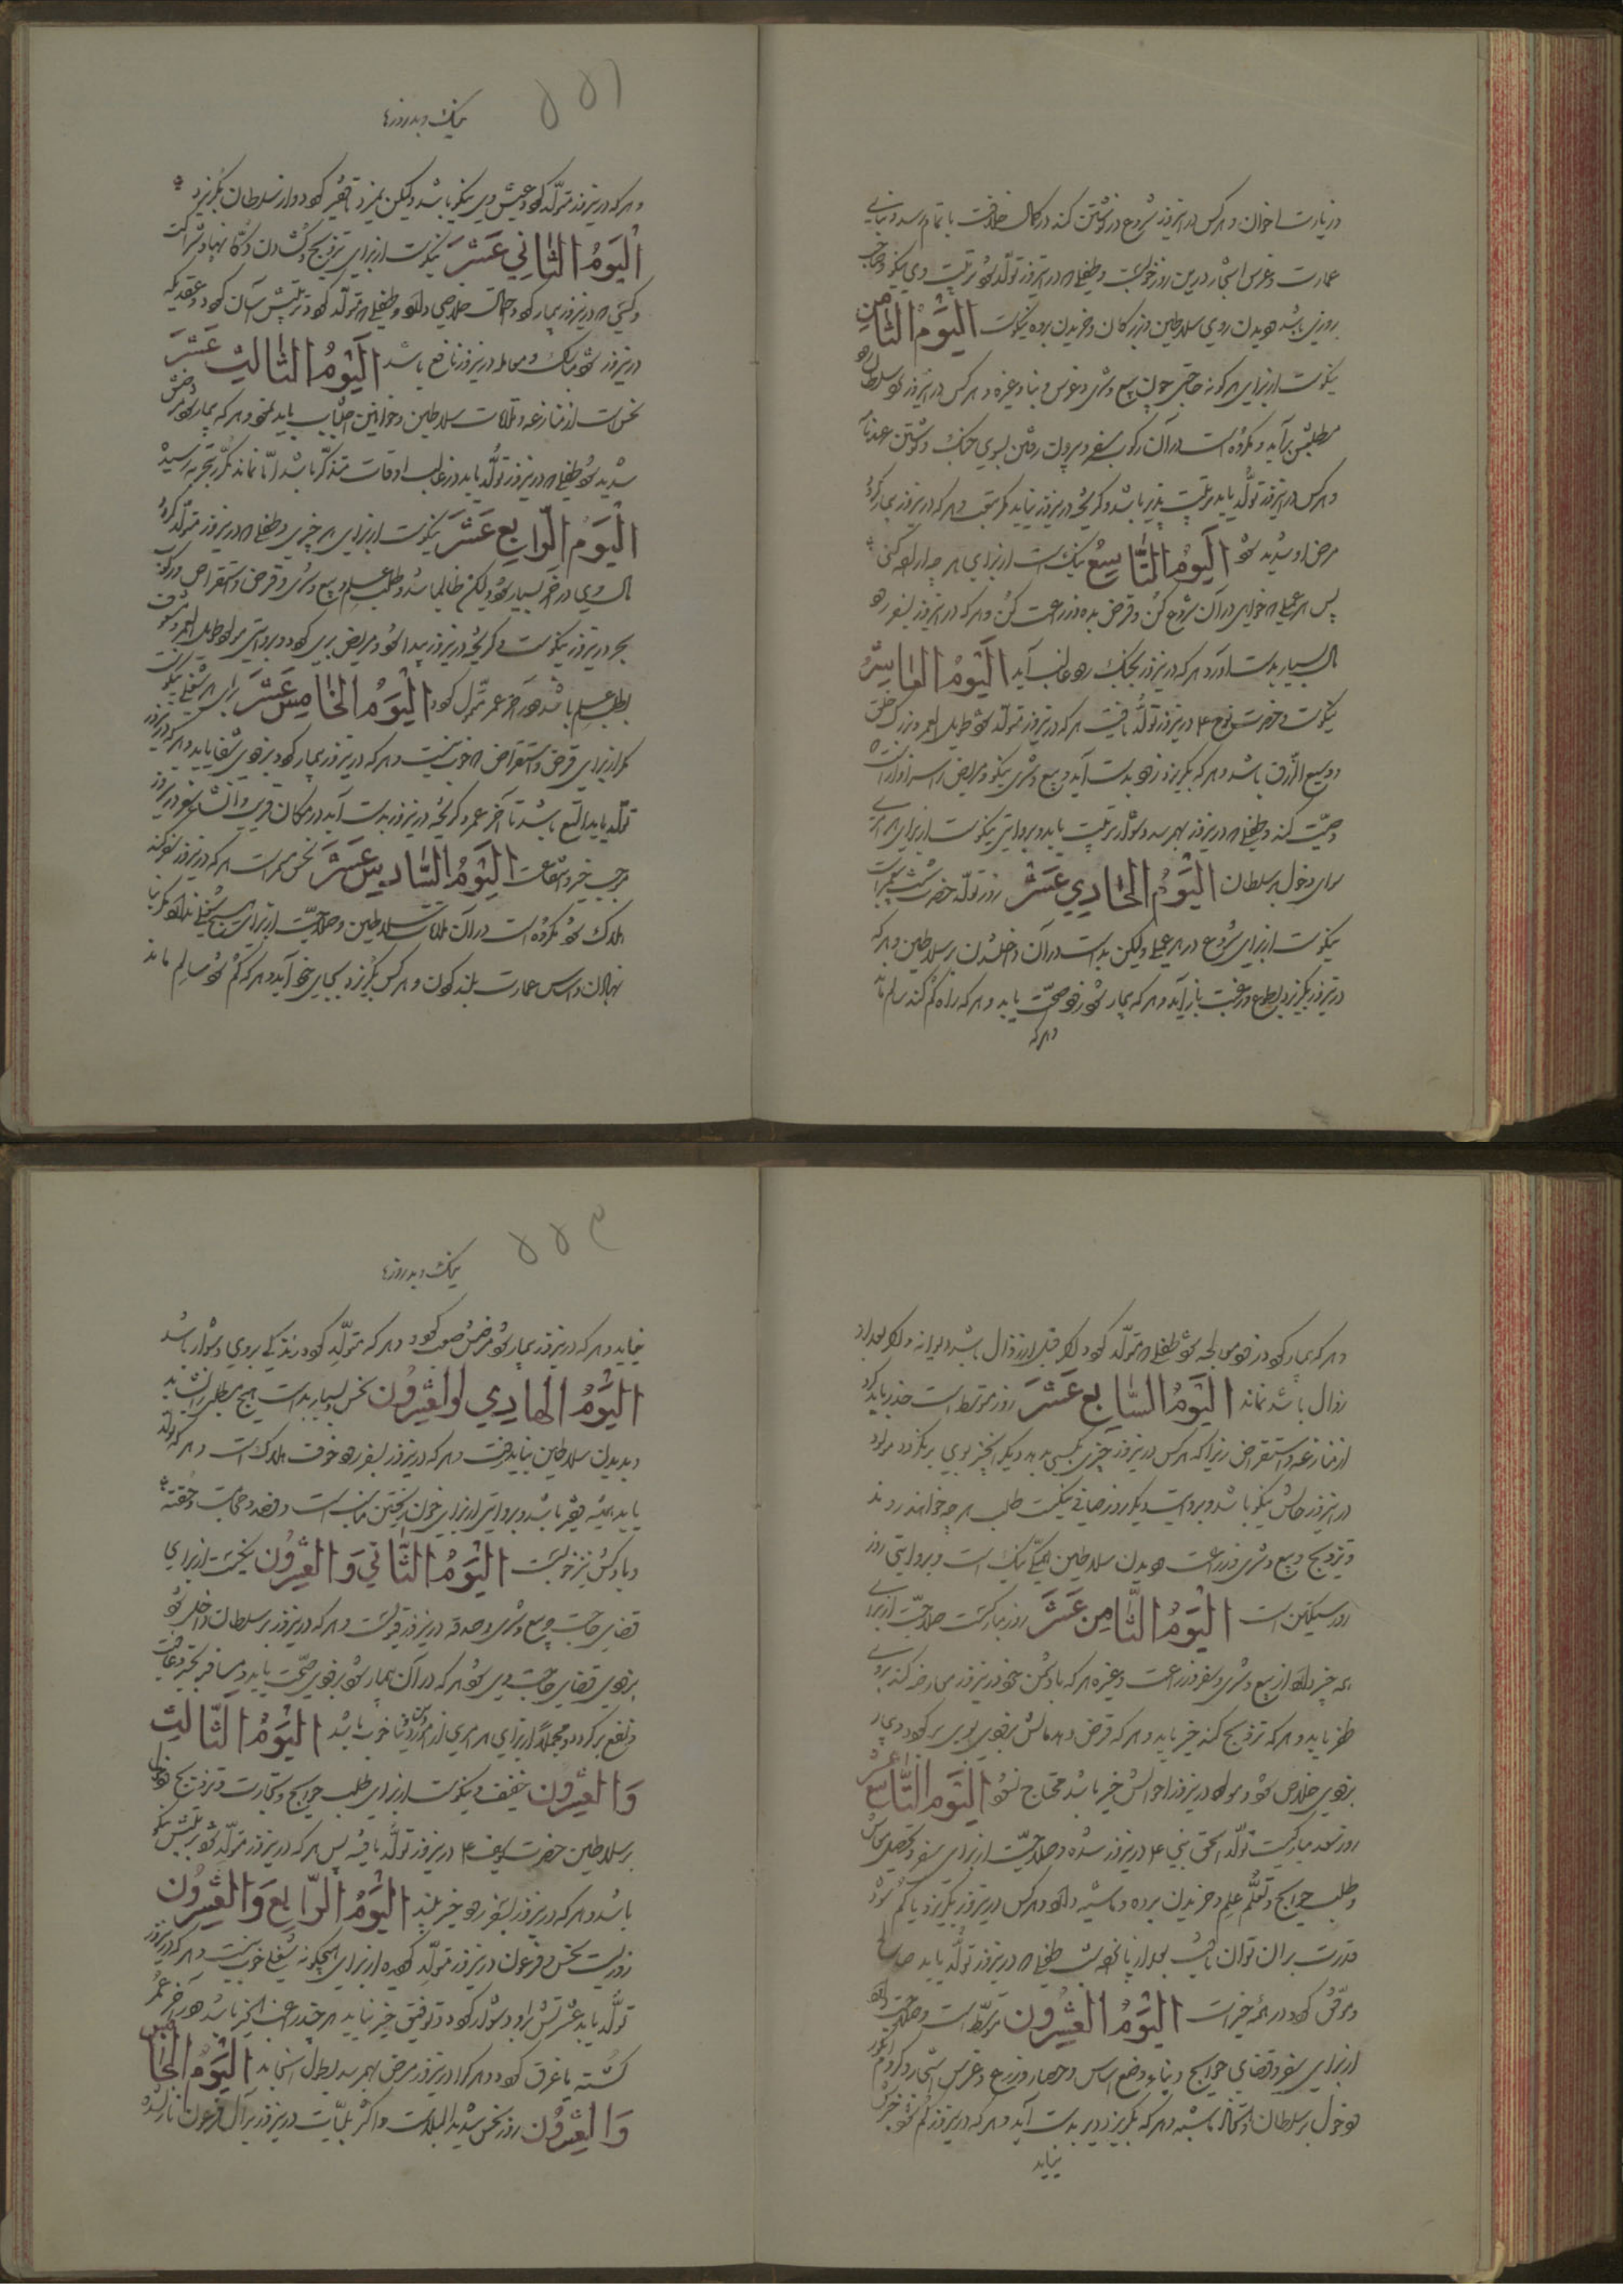 و زیارت اخوان و هر کس در این روز شروع در نوشتن کند در کمال حذاقت باتمام رسد و بنای
عمارت و غرس اشجار درین روز خوبست و طفلی که در این روز تولد شود تربیت وی نیکو و صاحب
روزی باشد و دیدن روی سلاطین و بزرگان و خریدن برده نیکوست الیَومُ الثامِن
نیکوست از برای هر گونه حاجتی چون بیع و شری و غرس و بنا و غیره و هر کس در این روز نزد سلطان رود
مطلبش برآید و مکروه است در آن رکوب سفر و بیرون رفتن بسوی جنک و نوشتن عهدنامه
و هر کس در این روز تولد یابد تربیت پذیر باشد و گریخته درین روز نیاید مگر بتعب و هر که درین روز بیمار گردد
مرض او شدید شود الیَومُ التّاسِعُ نیک است از برای هر چه اراده کنی
پس هر عملی که خواهی در آن شروع کن و قرض بده و زراعت کن و هر که در این روز بسفر رود
مال بسیار بدست آورد و هر که درین روز بجنک رود غالب آید الیَومُ العاشِرُ
نیکوست و حضرت نوح ع درین روز تولد یافت هر که درین روز متولد شود طویل العمر و بزرگ خلق
و وسیع الرزق باشد و هر که بگریزد زود بدست آید و بیع و شری نیکو و مریض را سزاوار آنست که
وصیت کند و طفلی که درین روز بهم رسد دشوار تربیت یابد و بروایتی نیکوست از برای هر امری
سوای دخول بر سلطان الیَومُ الحادِي عَشَرَ روز تولد حضرت شیث پیغمبر است
نیکوست از برای شروع در هر عملی ولیکن بد است در آن داخل شدن بر سلاطین و هر که
درین روز بگریزد بطوع و رغبت باز آید و هر که بیمار شود زود صحت یابد و هر که راه گم کند سالم ماند
و هر که
۵۵۱
نیک و بد روزها
و هر که درین روز متولد گردد عیش وی نیکو باشد ولیکن نمیرد تا فقیر گردد و از سلطان بگریزد
الیَومُ الثّانِي عَشَرَ نیکوست از برای تزویج و گشادن دکانها و شراکت
و کسی که درین روز بیمار گردد احتمال خلاصی دارد و طفلی که متولد گردد تربیتش آسان گردد و عقدیکه
درین روز شود مبارک و معامله درین روز نافع باشد الیَومُ الثّالِث عَشَرَ
نحس است از منازعه و ملاقات سلاطین و خوانین اجتناب باید نمود و هر که بیمار شود مرضش
شدید شود طفلی که درین روز تولد یابد در غالب اوقات متذکر باشد اما نماند مکرر بتجربه رسیده
الیَومُ الرّابِع عَشَرَ نیکوست از برای هر چیزی و طفلی که درین روز متولد گردد
مال وی در آخر بسیار شود ولیکن ظالم باشد و طلب علم و بیع و شری و قرض و استقراض و رکوب
بحر درین روز نیکوست و گریخته درین روز پیدا شود و مریض بری گردد و بروایتی مولود طویل العمر و مشعوف
بطلب علم باشد و در آخر عمر متمول گردد الیَومُ الخامِس عَشَرَ برای هر شغلی نیکوست
مگر از برای قرض و استقراض که خوب نیست و هر که درین روز بیمار گردد بزودی شفا یابد و هر که درین روز
تولد یابد الثغ باشد تا آخر عمر و گریخته درین روز بدست آید در مکان قریب و آنشد شود درین روز
موجب خیر و شفاعت الیَومُ السّادِس عَشَرَ نحس مستمر است هر که درین روز سفر کند
هلاک شود مکروه است در آن ملاقات سلاطین و صلاحیت از برای هیچ شغلی ندارد مگر بنا
نهادن و اساس عمارت بلند کردن و هر کس بگریزد بجای خود آید و هر که گم شود سالم ماند
و هر که بیمار گردد زود معالجه شود طفلی که متولد گردد اگر قبل از زوال باشد دیوانه و اگر بعد از
زوال باشد نماند الیَومُ السّابِع عَشَرَ روز متوسط است حذر باید کرد
از منازعه و استقراض زیرا که هر کس درین روز چیزی بکسی بدهد دیگر آنچیز بوی برنگردد مولود
در این روز حالش نیکو باشد و بروایت دیگر روز صافی نیکست طلب هر چه خواهند روند
و تزویج و بیع و شری و زراعت و دیدن سلاطین همگی نیک است و بروایتی روز
روز سنگین است الیَومُ الثّامِن عَشَرَ روز مبارکست صلاحیت از برای
همه چیز دارد از بیع و شری و سفر و زراعت و غیره هر که با دشمن خود درین روز معارضه کند بر وی
ظفر یابد و هر که تزویج کند خیر یابد و هر که قرض دهد مالش بزودی بوی برگردد و بیمار
بزودی خلاص شود و مولود درین روز احوالش خیر باشد محتاج نشود الیَوم التّاسِع عَشَرَ
روز سعد مبارکیست تولد اسحق نبی ع درین روز شده و صلاحیت از برای سفر و تحصیل معاش
و طلب حوایج و تعلّم علم و خریدن برده و ماشیه دارد و هر کس درین روز بگریزد یا گم شود
قدرت بر آن توان یافت بعد از پانزده شب طفلی که درین روز تولد یابد صالح
و موفق گردد در همه خیرات الیَومُ العِشرُون متوسط است و صلاحیت دارد
از برای سفر و قضای حوایج و بناء و وضع اساس و حصار و زرع و غرس اشجار و کروم انگور
و دخول بر سلطان و اتخاذ ماشیه و هر که بگریزد دیر بدست آید و هر که درین روز گم شود خبرش
نیاید
۵۵۳
نیک و بد روزها
نیاید و هر که درین روز بیمار شود مرضش صعب گردد و هر که متولد گردد زندگی بر وی دشوار باشد
الیَومُ الحادِي والعِشرُون نحس و بسیار بد است هیچ مطلب را نشاید
و بدیدن سلاطین نباید رفت و هر که درین روز بسفر رود خوف هلاک است و هر که تولد
یابد همیشه فقیر باشد و بروایتی از برای خون ریختن مناسب است و فصد و حجامت و حقنه
و بادکش نیز خوبست الیَومُ الثّاني وَ العِشرُون نیکست از برای
قضای حاجت و بیع و شری و صدقه درین روز قبولست و هر که درین روز بر سلطان داخل شود
بزودی قضای حاجت وی شود هر که در آن بیمار شود بزودی صحت یابد و مسافر بخیر و عافیت
و نفع برگردد و مجملاً از برای هر امری از امور دنیا خوب باشد الیَومُ الثّالِث
وَ العِشرُون خفیف و نیکوست از برای طلب حوایج و تجارت و تزویج و دخول
بر سلاطین حضرت یوسف ع درین روز تولد یافته پس هر که درین روز متولد شود تربیتش نیکو
باشد و هر که درین روز بسفر رود خیر بیند الیَومُ الرّابِعَ وَ العِشرُون
روزیست نحس فرعون درین روز متولد گردیده از برای هیچگونه شغلی خوب نیست و هر که درین روز
تولد یابد عیش تنگ و دشوار گردد و توفیق خیر نیابد هر چند راغب الخیر باشد و در آخر عمر
کشته یا غرق گردد و هر که را درین روز مرضی بهم رسد بطول انجامد الیَومُ الخامِس
وَ العِشرُون روز نحس شدید البلاست و اکثر بلیّات درین روز بر آل فرعون نازل شده